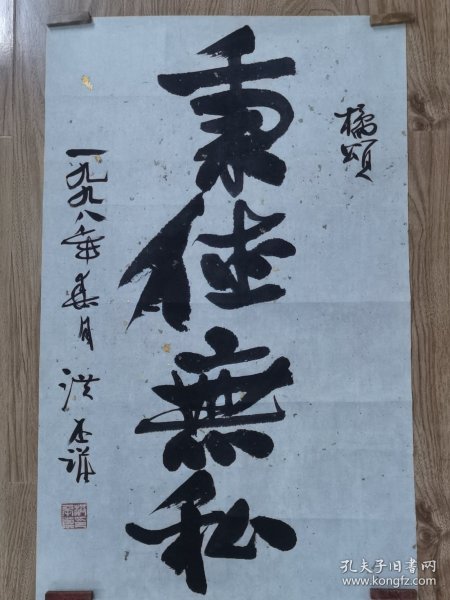 橘頌
秉德無私
一九九八年春月 洪丕謨
孔夫子旧书网
www.kongfz.com